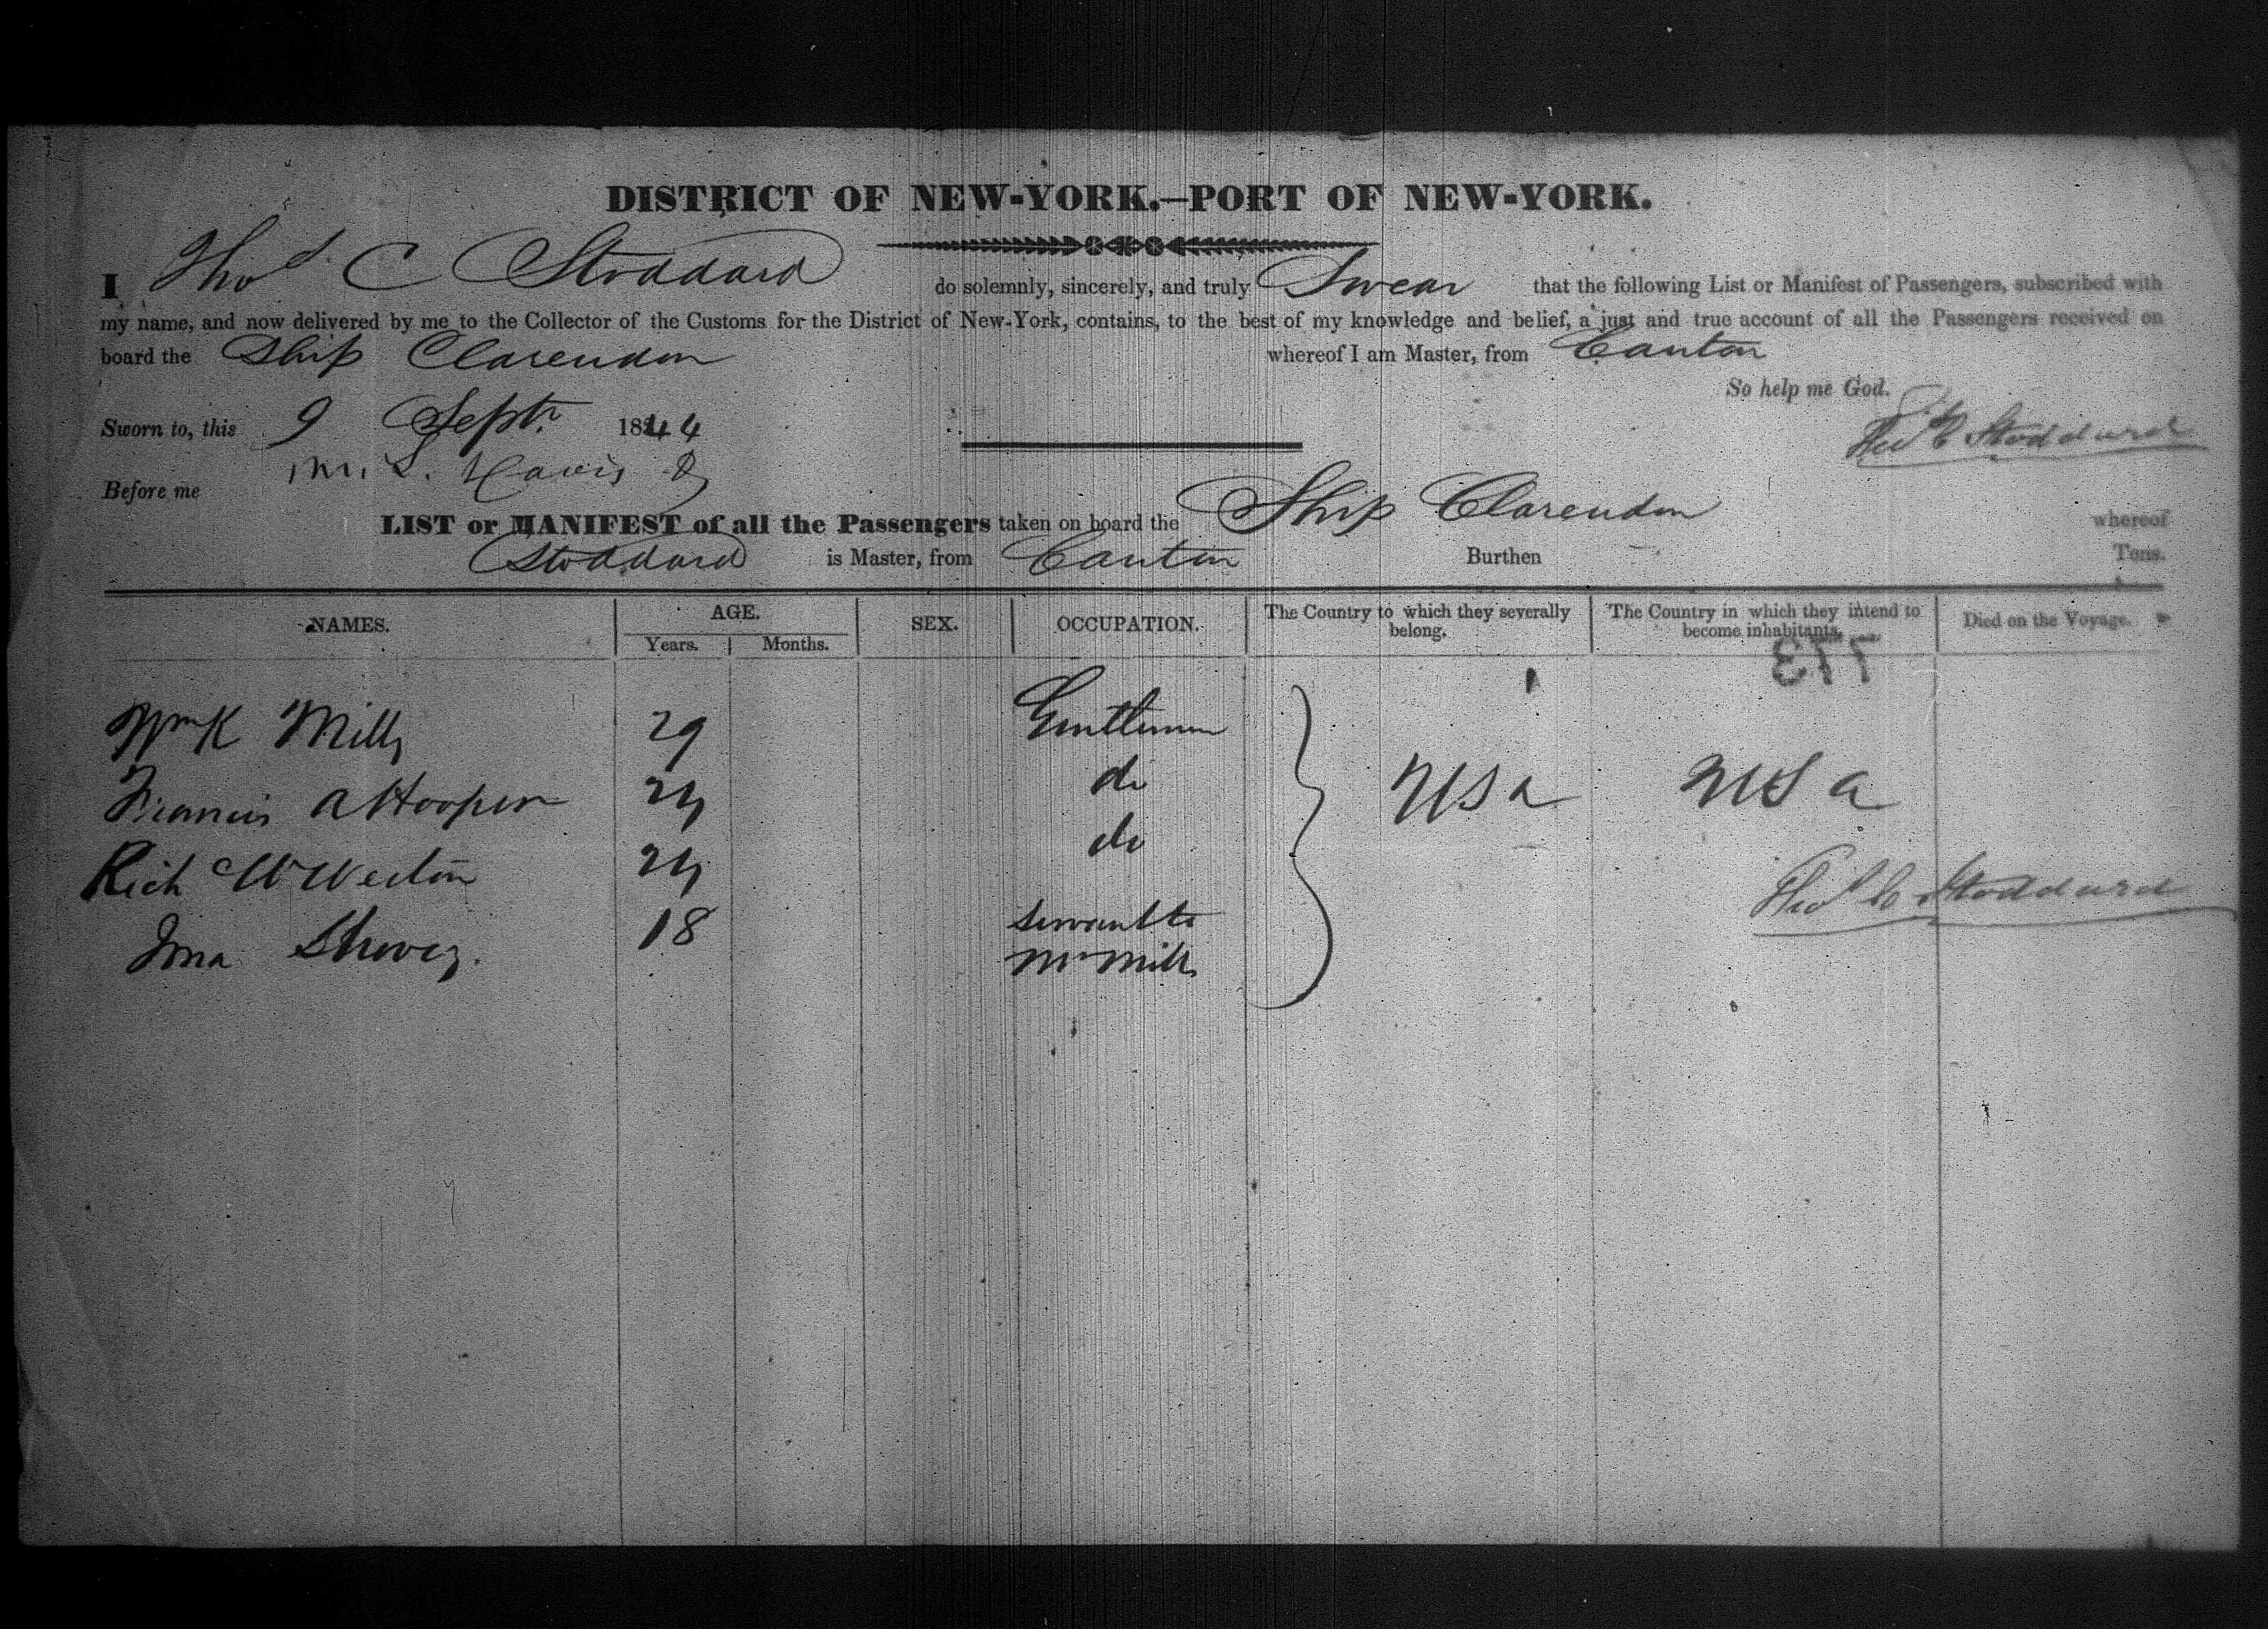 DISTRICT OF NEW-YORK.—PORT OF NEW-YORK.
I, Thos C Stoddard do solemnly, sincerely, and truly Swear that the following List or Manifest of Passengers, subscribed with
my name, and now delivered by me to the Collector of the Customs for the District of New-York, contains, to the best of my knowledge and belief, a just and true account of all the Passengers received on
board the Ship Clarendon whereof I am Master, from Canton
So help me God.
Sworn to, this 9 Sept. 1844
Thos C Stoddard
Before me M. L. Davis
LIST or MANIFEST of all the Passengers taken on board the Ship Clarendon whereof
Stoddard is Master, from Canton Burthen Tons.
NAMES. AGE. SEX. OCCUPATION. The Country to which they severally belong. The Country in which they intend to become inhabitants. Died on the Voyage.
Years. Months.
773
Wm K Mills 29 Gentleman
Francis A Hooper 24 do USA USA
Rich W Weston 24 do
Thos C Stoddard
18 servant to
Mr Mills